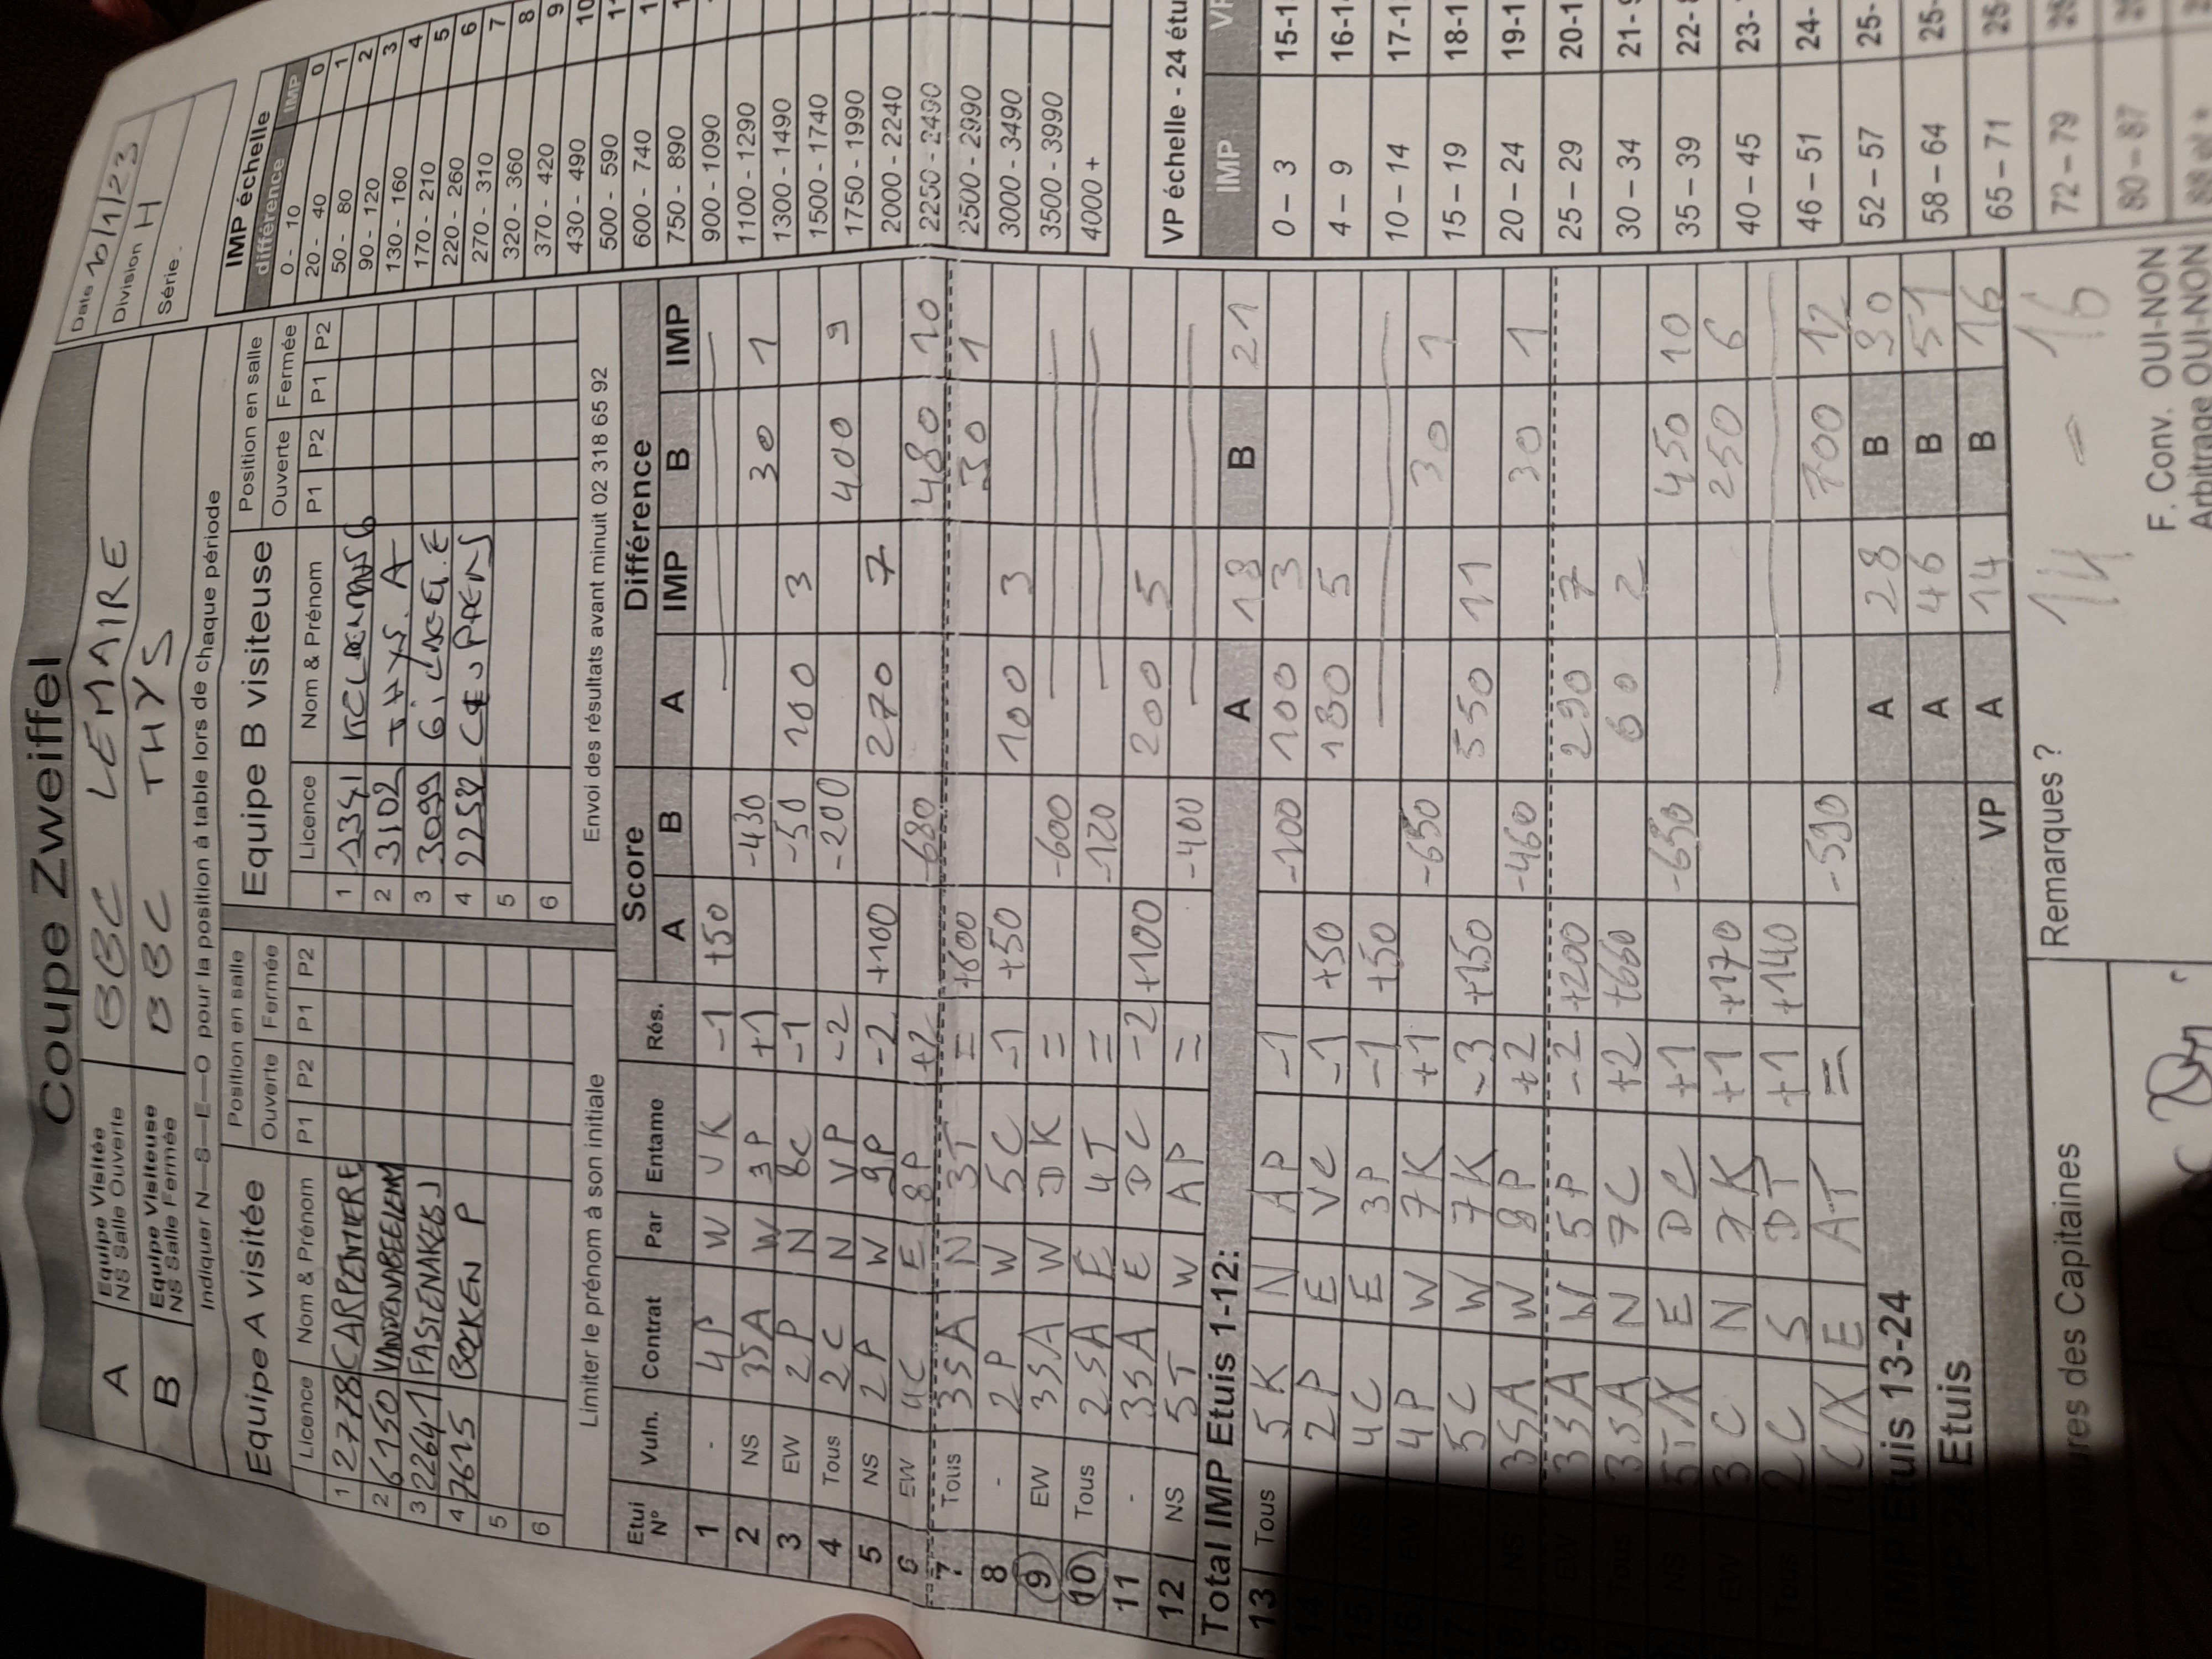 Coupe Zweiffel
Date 10/1/23
Division H
Série.
A Equipe Visitée NS Salle Ouverte BBC LEMAIRE
B Equipe Visiteuse NS Salle Fermée BBC THYS
Indiquer N—S—E—O pour la position à table lors de chaque période
Equipe A visitée Position en salle
Ouverte Fermée
Licence Nom & Prénom P1 P2 P1 P2
1 2778 CARPENTIERE
2 6150 VANDENABEELE
3 22641 FASTENAKES J
4 7615 BOCKEN P
5
6
Limiter le prénom à son initiale
Equipe B visiteuse Position en salle
Ouverte Fermée
Licence Nom & Prénom P1 P2 P1 P2
1
2 3102 THYS. A
3 3099
4
5
6
Envoi des résultats avant minuit 02 318 65 92
Score Différence
Etui N° Vuln. Contrat Par Entame Rés. A B A IMP B IMP
1 - 4P W VK -1 +50
2 NS 3SA W 3P +1 -430 30 1
3 EW 2P N 8C -1 -50 100 3
4 Tous 2C N VP -2 -200 400 9
5 NS 2P W 9P -2 +100 270 7
6 EW 4C E 8P +2 -680 480 10
7 Tous 3SA N 3T = +600 30 1
8 - 2P W 5C -1 +50 100 3
9 EW 3SA W DK = -600
10 Tous 2SA E 4T = -120
11 - 3SA E DC -2 +100 200 5
12 NS 5T W AP = -400
Total IMP Etuis 1-12: A 18 B 21
13 Tous 5K N AP -1 -100 100 3
14 2P E VC -1 +50 180 5
15 NS 4C E 3P -1 +50
16 EW 4P W 7K +1 -650 30 1
17 - 5C W 7K -3 +150 550 11
18 NS 3SA W 9P +2 -460 30 1
19 EW 3SA W 5P -2 +200 290 7
20 Tous 3SA N 7C +2 +660 60 2
NS 5T/X E DC +1 -650 450 10
EW 3C N 7K +1 +170 250 6
Tous 2C S DT +1 +140
4C/X E AT = -590 700 12
IMP Etuis 13-24 A 28 B 30
IMP 24 Etuis A 46 B 51
VP A 14 B 16
Signatures des Capitaines
Remarques ?
14 = 16
F. Conv. OUI-NON
Arbitrage OUI-NON
IMP échelle
différence IMP
0 - 10 0
20 - 40 1
50 - 80 2
90 - 120 3
130 - 160 4
170 - 210 5
220 - 260 6
270 - 310 7
320 - 360 8
370 - 420 9
430 - 490 10
500 - 590
600 - 740
750 - 890
900 - 1090
1100 - 1290
1300 - 1490
1500 - 1740
1750 - 1990
2000 - 2240
2250 - 2490
2500 - 2990
3000 - 3490
3500 - 3990
4000 +
VP échelle - 24 étu
IMP VP
0 – 3 15-1
4 – 9 16-1
10 – 14 17-1
15 – 19 18-1
20 – 24 19-1
25 – 29 20-1
30 – 34 21-9
35 – 39 22-8
40 – 45 23-
46 – 51 24-
52 – 57 25-
58 – 64 25-
65 – 71 25-
72 – 79
80 – 87